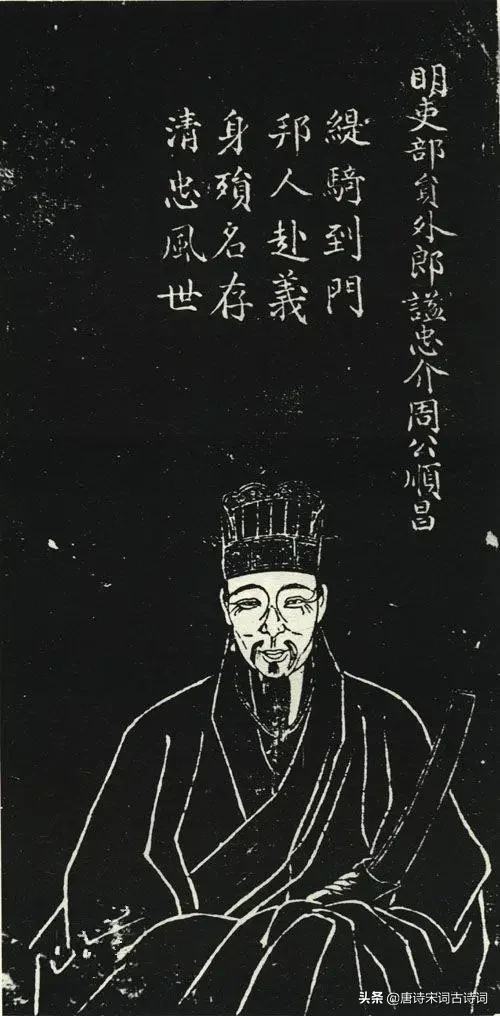 明吏部員外郎謚忠介周公順昌
緹騎到門
邦人赴義
身殞名存
清忠風世
头条 @唐诗宋词古诗词